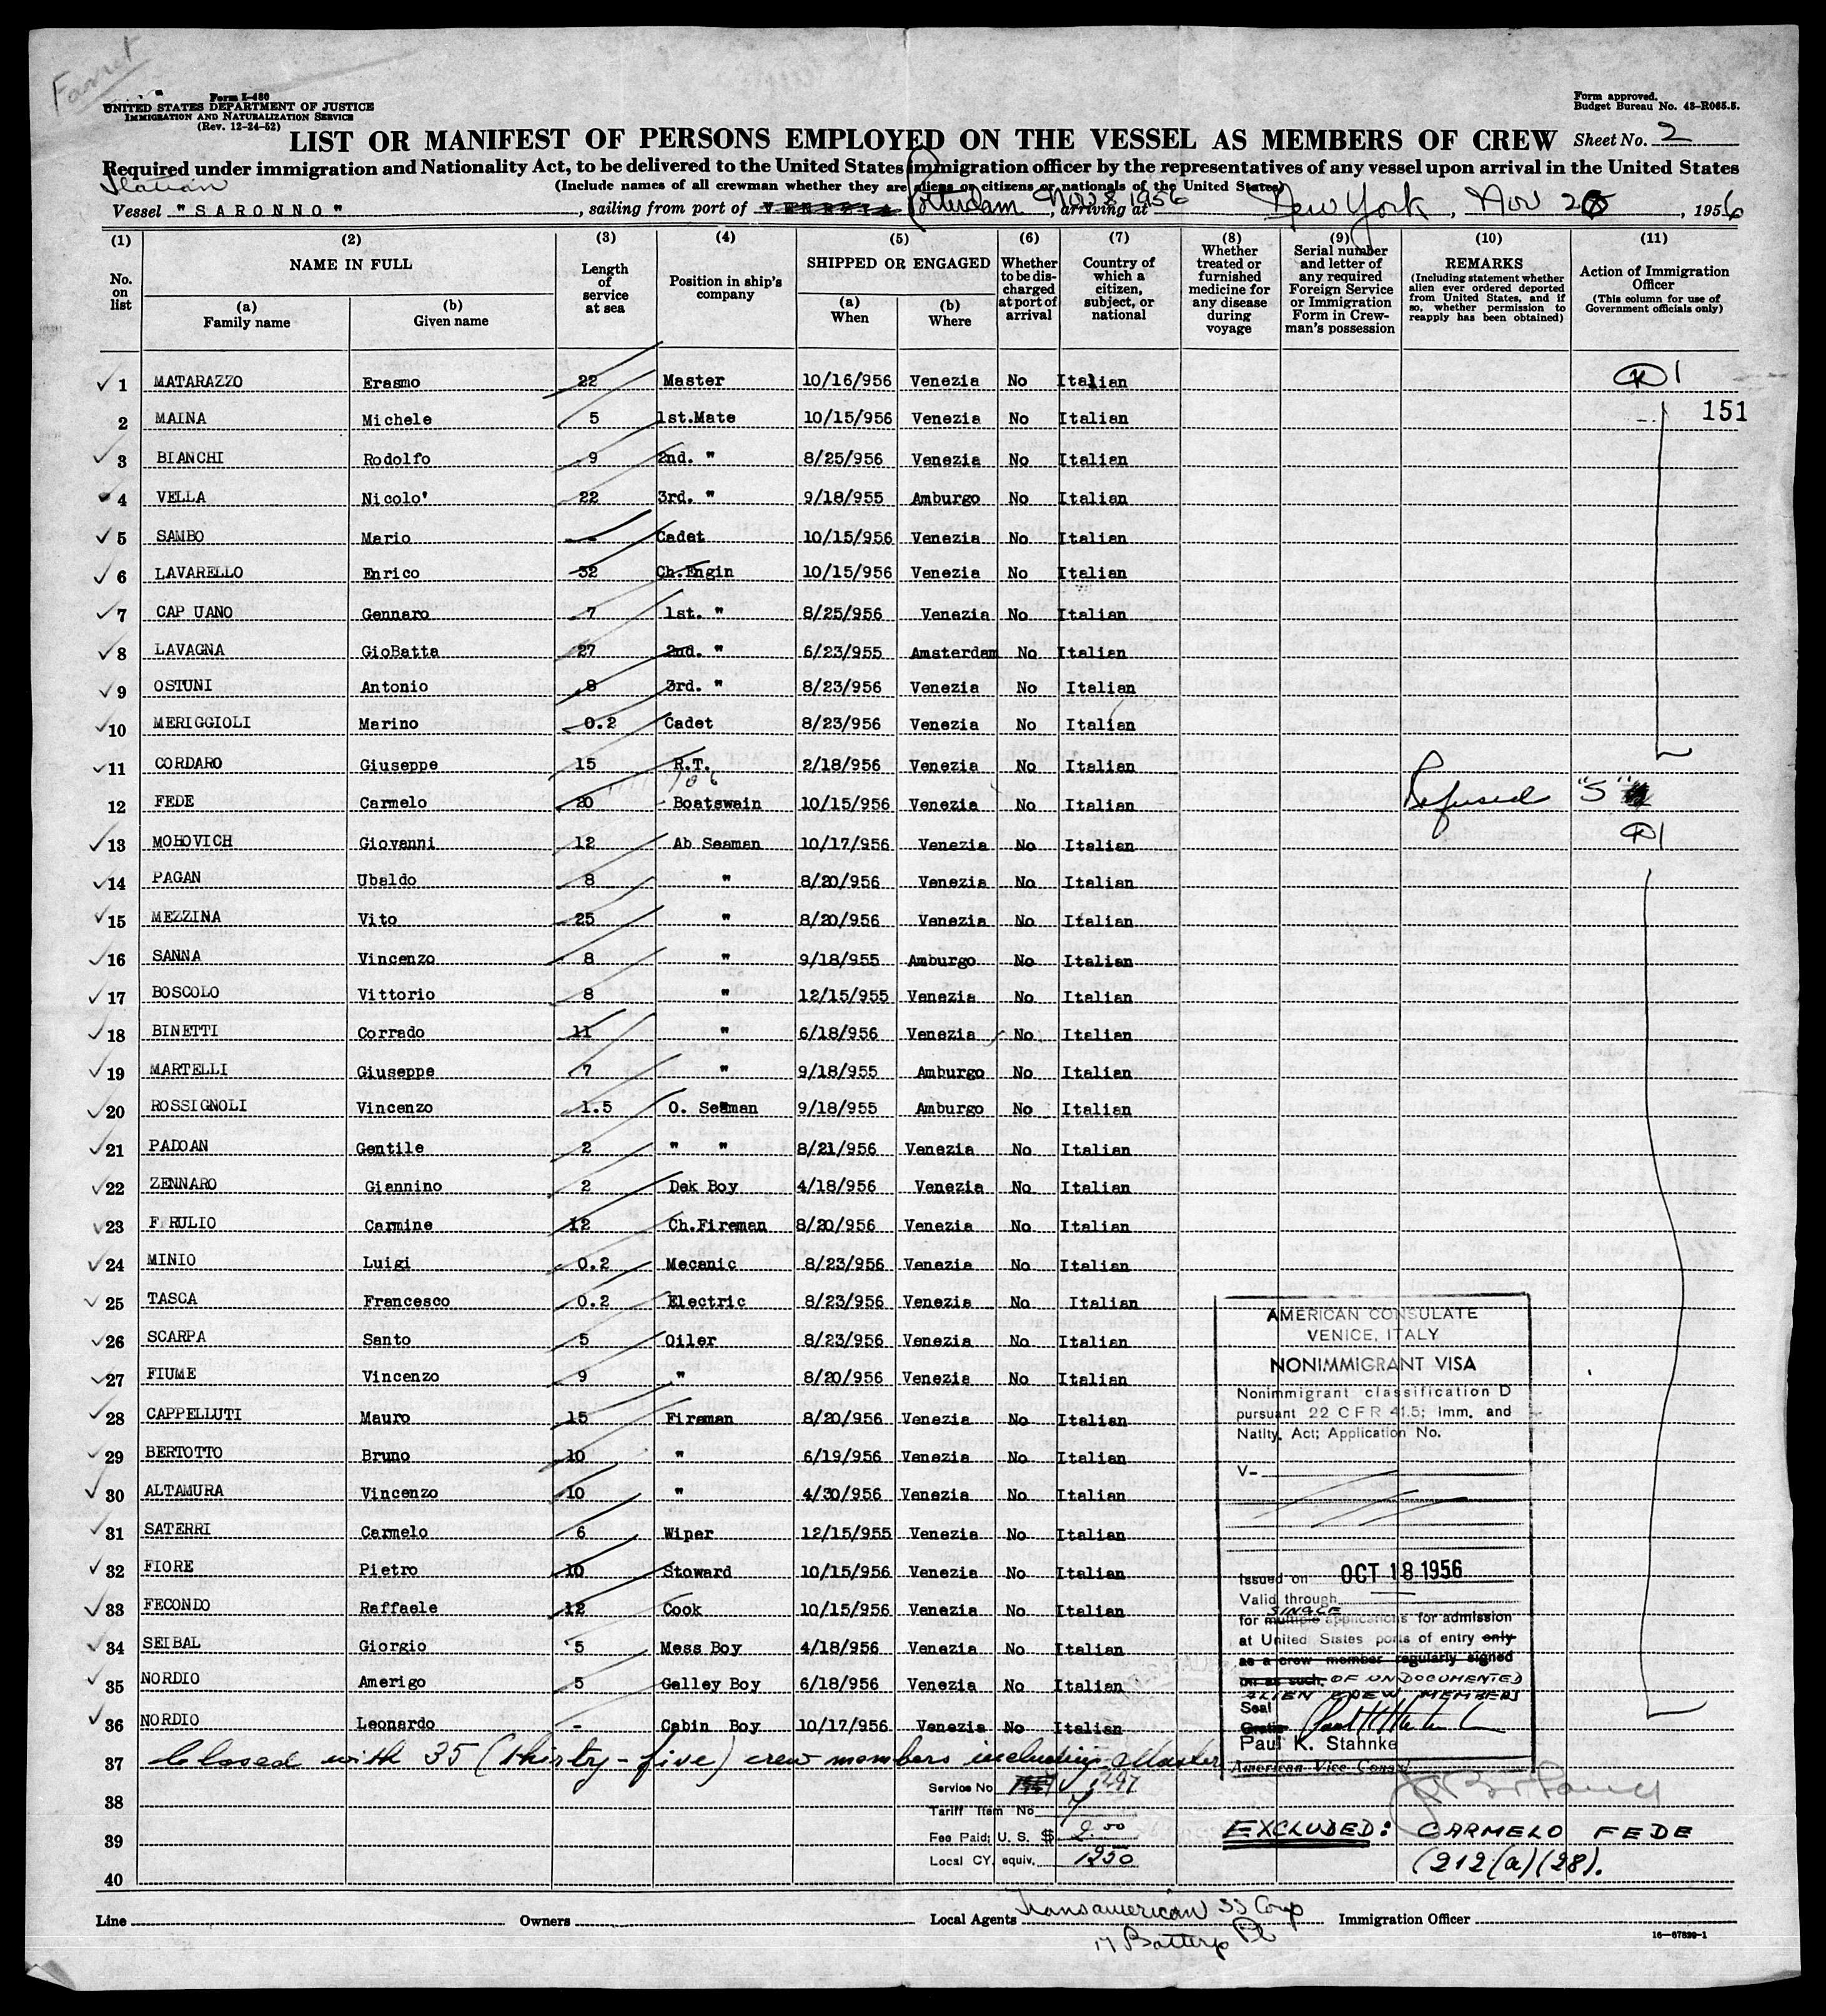 Form I-480
UNITED STATES DEPARTMENT OF JUSTICE
IMMIGRATION AND NATURALIZATION SERVICE
(Rev. 12-24-52)
Form approved.
Budget Bureau No. 43-R065.5.
LIST OR MANIFEST OF PERSONS EMPLOYED ON THE VESSEL AS MEMBERS OF CREW Sheet No. 2
Required under immigration and Nationality Act, to be delivered to the United States immigration officer by the representatives of any vessel upon arrival in the United States
(Include names of all crewman whether they are aliens or citizens or nationals of the United States)
Italian
Vessel "SARONNO", sailing from port of Rotterdam Nov 8 1956, arriving at New York, Nov 25, 1956
(1) (2) (3) (4) (5) (6) (7) (8) (9) (10) (11)
No. on list
NAME IN FULL
(a) Family name
(b) Given name
Length of service at sea
Position in ship's company
SHIPPED OR ENGAGED
(a) When
(b) Where
Whether to be discharged at port of arrival
Country of which a citizen, subject, or national
Whether treated or furnished medicine for any disease during voyage
Serial number and letter of any required Foreign Service or Immigration Form in Crewman's possession
REMARKS
(Including statement whether alien ever ordered deported from United States, and if so, whether permission to reapply has been obtained)
Action of Immigration Officer
(This column for use of Government officials only)
1 MATARAZZO Erasmo 22 Master 10/16/956 Venezia No Italian
2 MAINA Michele 5 1st.Mate 10/15/956 Venezia No Italian 151
3 BIANCHI Rodolfo 9 2nd. " 8/25/956 Venezia No Italian
4 VELLA Nicolo' 22 3rd. " 9/18/955 Amburgo No Italian
5 SAMBO Mario - Cadet 10/15/956 Venezia No Italian
6 LAVARELLO Enrico 32 Ch.Engin 10/15/956 Venezia No Italian
7 CAP UANO Gennaro 7 1st. " 8/25/956 Venezia No Italian
8 LAVAGNA GioBatta 27 2nd. " 6/23/955 Amsterdam No Italian
9 OSTUNI Antonio 8 3rd. " 8/23/956 Venezia No Italian
10 MERIGGIOLI Marino 0.2 Cadet 8/23/956 Venezia No Italian
11 CORDARO Giuseppe 15 R.T. 2/18/956 Venezia No Italian
12 FEDE Carmelo 20 Boatswain 10/15/956 Venezia No Italian Refused "S"
13 MOHOVICH Giovanni 12 Ab Seaman 10/17/956 Venezia No Italian
14 PAGAN Ubaldo 8 " 8/20/956 Venezia No Italian
15 MEZZINA Vito 25 " 8/20/956 Venezia No Italian
16 SANNA Vincenzo 8 " 9/18/955 Amburgo No Italian
17 BOSCOLO Vittorio 8 " 12/15/955 Venezia No Italian
18 BINETTI Corrado 11 " 6/18/956 Venezia No Italian
19 MARTELLI Giuseppe 7 " 9/18/955 Amburgo No Italian
20 ROSSIGNOLI Vincenzo 1.5 O. Seaman 9/18/955 Amburgo No Italian
21 PADOAN Gentile 2 " " 8/21/956 Venezia No Italian
22 ZENNARO Giannino 2 Dek Boy 4/18/956 Venezia No Italian
23 F RULIO Carmine 12 Ch.Fireman 8/20/956 Venezia No Italian
24 MINIO Luigi 0.2 Mecanic 8/23/956 Venezia No Italian
25 TASCA Francesco 0.2 Electric 8/23/956 Venezia No Italian
26 SCARPA Santo 5 Oiler 8/23/956 Venezia No Italian
27 FIUME Vincenzo 9 " 8/20/956 Venezia No Italian
28 CAPPELLUTI Mauro 15 Fireman 8/20/956 Venezia No Italian
29 BERTOTTO Bruno 10 " 6/19/956 Venezia No Italian
30 ALTAMURA Vincenzo 10 " 4/30/956 Venezia No Italian
31 SATERRI Carmelo 6 Wiper 12/15/955 Venezia No Italian
32 FIORE Pietro 10 Stoward 10/15/956 Venezia No Italian
33 FECONDO Raffaele 12 Cook 10/15/956 Venezia No Italian
34 SEIBAL Giorgio 5 Mess Boy 4/18/956 Venezia No Italian
35 NORDIO Amerigo 5 Galley Boy 6/18/956 Venezia No Italian
36 NORDIO Leonardo - Cabin Boy 10/17/956 Venezia No Italian
37 Closed with 35 (thirty-five) crew members including Master
38
39
40
AMERICAN CONSULATE
VENICE, ITALY
NONIMMIGRANT VISA
Nonimmigrant classification D
pursuant 22 CFR 41.5; Imm. and
Natlty. Act; Application No.
V-
Issued on OCT 18 1956
Valid through
SINGLE
for multiple applications for admission
at United States ports of entry only
as a crew member regularly signed
on as such. OF UNDOCUMENTED
ALIEN CREW MEMBERS
Seal
Gratis
Paul K. Stahnke
American Vice Consul
Service No. 1297
Tariff Item No. 7
Fee Paid; U. S. $ 2.00
Local CY. equiv. 1250
EXCLUDED: CARMELO FEDE
(212(a)(28).
Line Owners Local Agents Transamerican SS Corp Immigration Officer
17 Battery Pl
16-67820-1